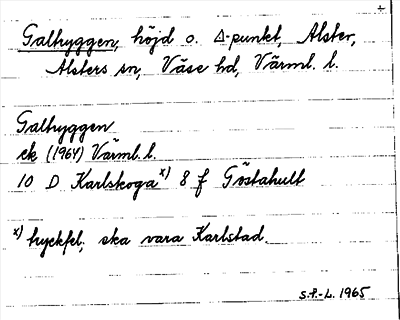 +
Galtryggen, höjd o. Δ-punkt, Alster,
Alsters sn, Väse hd, Värml. l.
Galtryggen
ek (1964) Värml. l.
10 D Karlskoga x) 8 f Göstahult
x) tryckfel, ska vara Karlstad.
S.F.-L. 1965